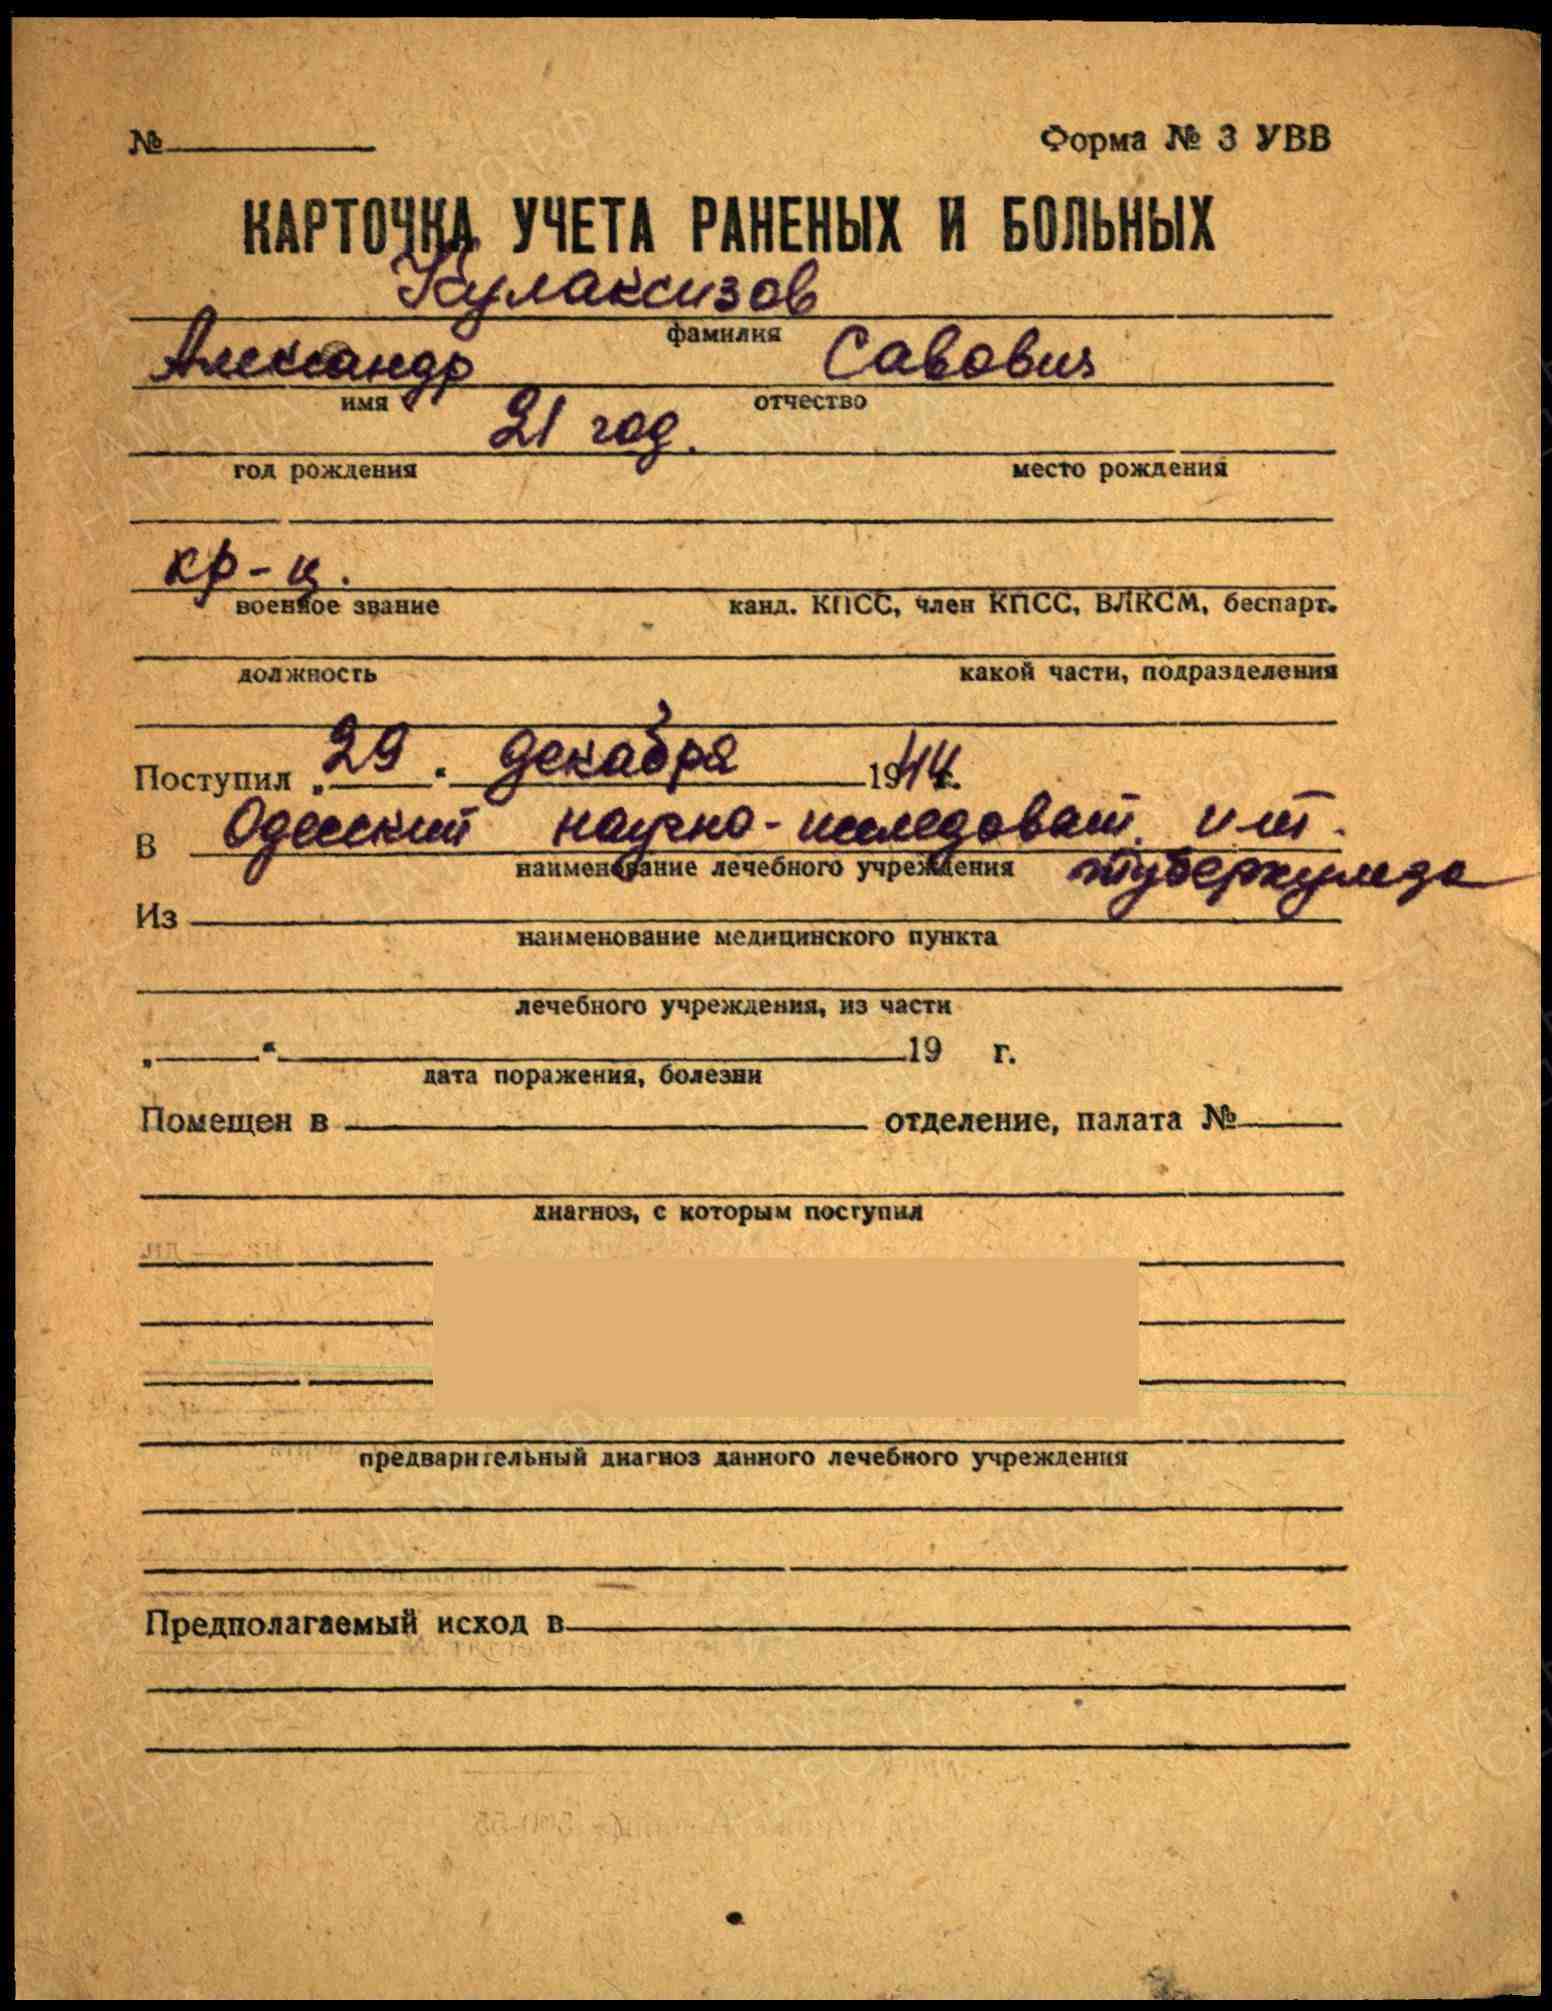 № Форма № 3 УВВ
КАРТОЧКА УЧЕТА РАНЕНЫХ И БОЛЬНЫХ
Кулаксизов
фамилия
Александр Савович
имя отчество
21 год.
год рождения место рождения
кр-ц.
военное звание канд. КПСС, член КПСС, ВЛКСМ, беспарт.
должность какой части, подразделения
Поступил „29“ декабря 1944 г.
В Одесский научно-исследоват. и-т.
наименование лечебного учреждения туберкулеза
Из
наименование медицинского пункта
лечебного учреждения, из части
„ “ 19 г.
дата поражения, болезни
Помещен в отделение, палата №
диагноз, с которым поступил
предварительный диагноз данного лечебного учреждения
Предполагаемый исход в